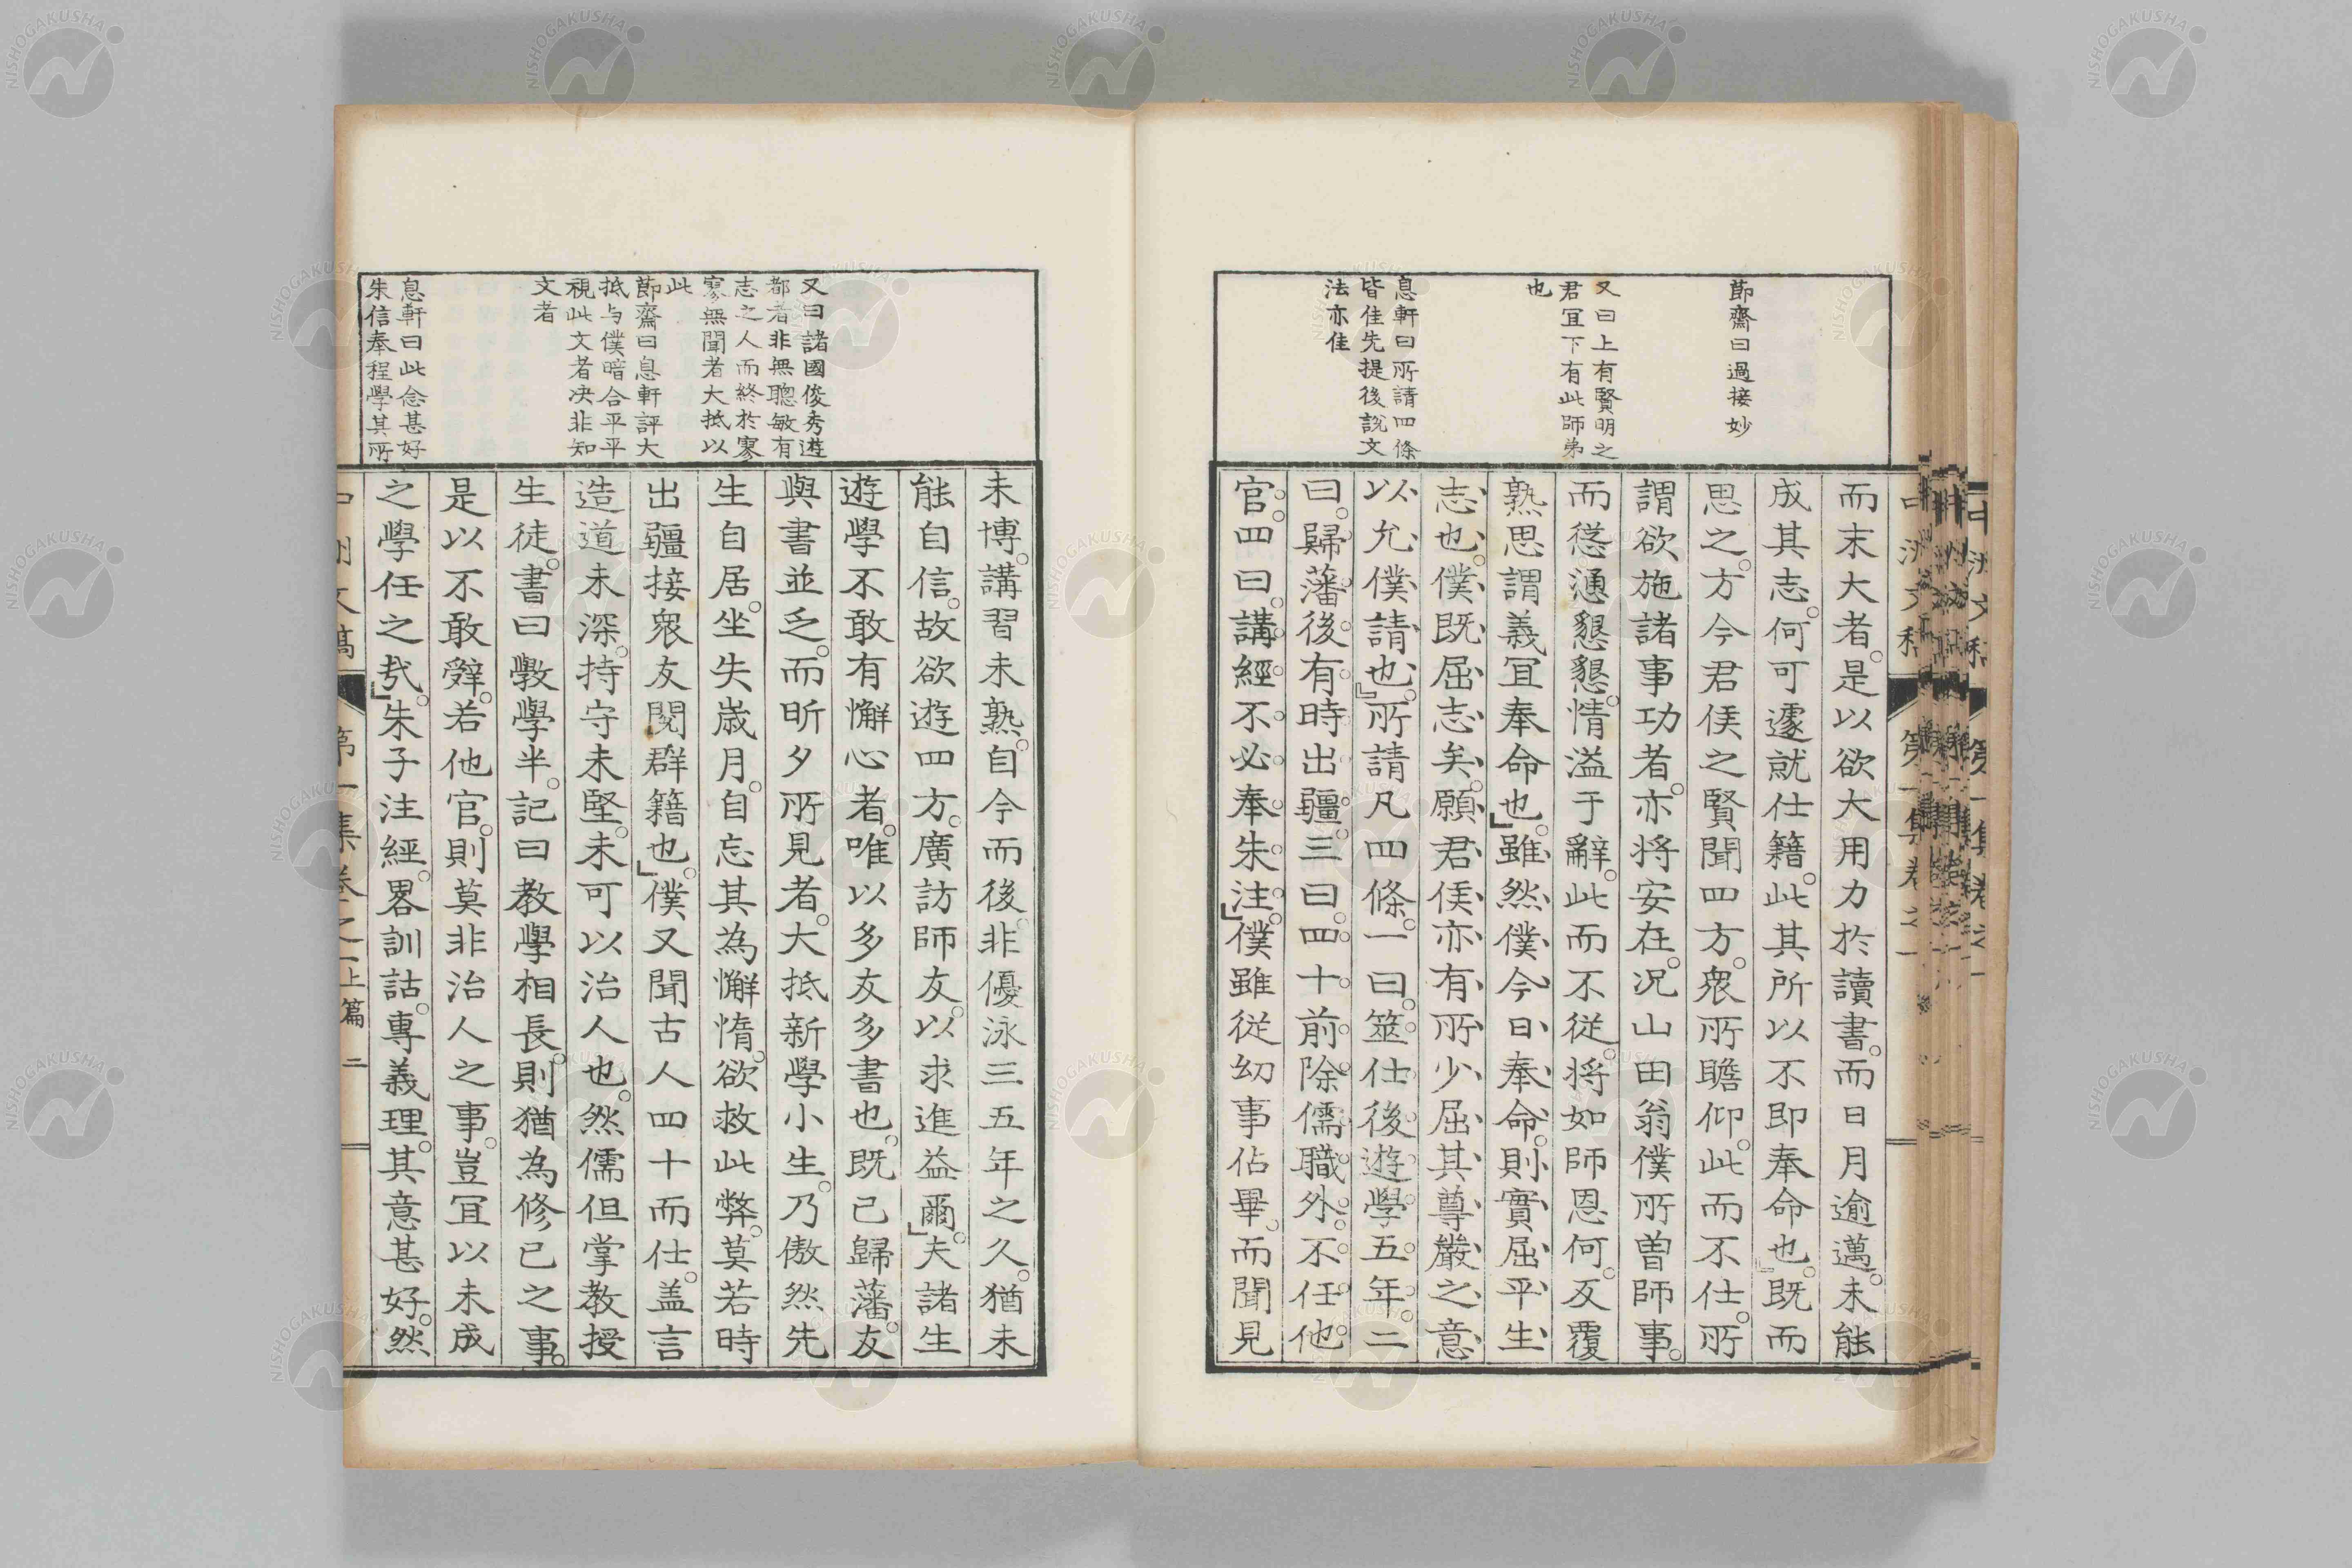 節齋曰過接妙
又曰上有賢明之
君冝下有此師弟
也
息軒曰所請四條
皆佳先提後説文
法亦佳
而末大者。是以欲大用力於讀書。而日月逾邁。未能
成其志。何可遽就仕籍。此其所以不即奉命也。既而
思之。方今君侯之賢聞四方。衆所瞻仰。此而不仕。所
謂欲施諸事功者。亦将安在。况山田翁僕所曽師事。
而慫慂懇懇。情溢于辭。此而不従。将如師恩何。反覆
熟思謂義冝奉命也。雖然僕今日奉命。則實屈平生
志也。僕既屈志矣。願君侯亦有所少屈其尊嚴之意
以允僕請也。所請凡四條。一曰。筮仕後遊學五年。二
曰。歸藩後有時出疆。三曰。四十前除儒職外。不任他
官。四曰。講經不必奉朱注。僕雖従幼事佔畢。而聞見
又曰諸國俊秀遊
都者非無聰敏有
志之人而終於寥
寥無聞者大抵以
此
節齋曰息軒評大
抵与僕暗合平平
視此文者决非知
文者
息軒曰此念甚好
朱信奉程學其所
未博。講習未熟。自今而後。非優泳三五年之久。猶未
能自信。故欲遊四方。廣訪師友。以求進益爾。夫諸生
遊學不敢有懈心者。唯以多友多書也。既已歸藩。友
與書並乏。而昕夕所見者。大抵新學小生。乃傲然先
生自居。坐失歳月。自忘其為懈惰。欲救此弊。莫若時
出疆接衆友閲群籍也。僕又聞古人四十而仕。盖言
造道未深。持守未堅。未可以治人也。然儒但掌教授
生徒。書曰斆學半。記曰教學相長。則猶為修己之事。
是以不敢辤。若他官。則莫非治人之事。豈冝以未成
之學任之㢤。朱子注經。畧訓詁。專義理。其意甚好。然
中洲文稿 第一集卷之一上篇 二
NISHOGAKUSHA